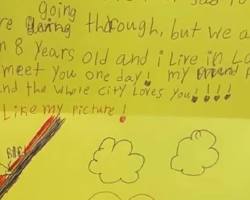 going
re through, but we a
8 years old and i Live in La
meet you one day! my
nd the whole city Loves you!!!!
Like my picture!